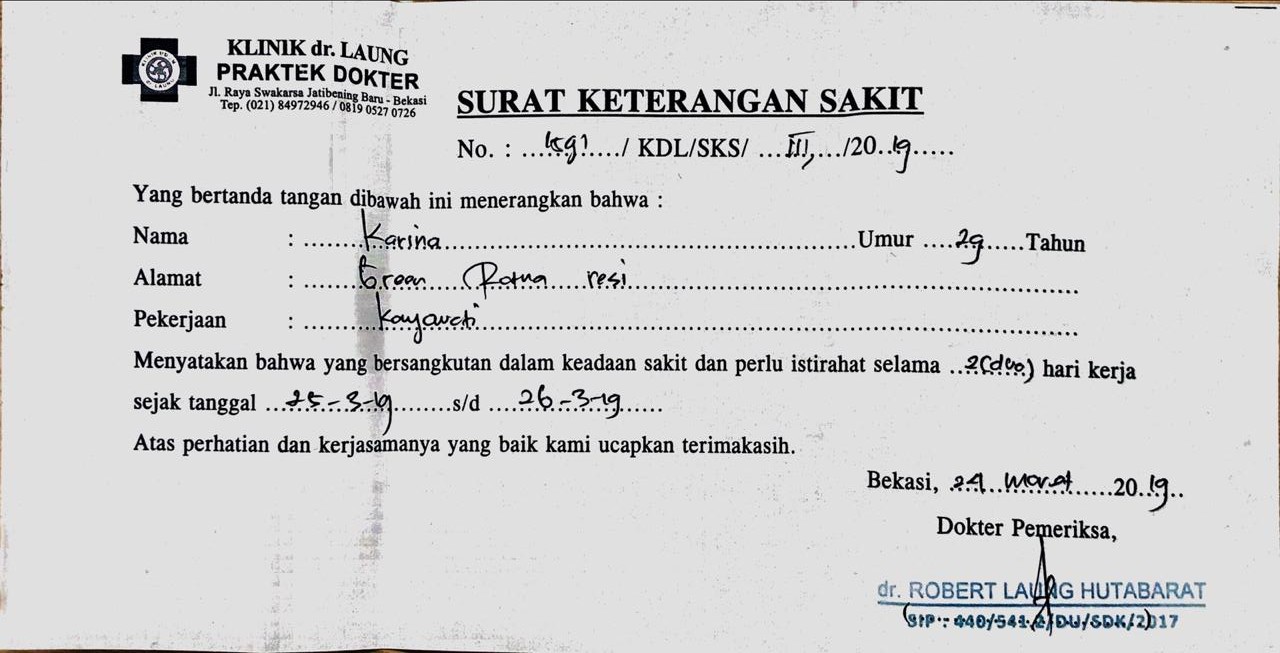 KLINIK dr. LAUNG
PRAKTEK DOKTER
Jl. Raya Swakarsa Jatibening Baru - Bekasi
Tep. (021) 84972946 / 0819 0527 0726
SURAT KETERANGAN SAKIT
No. : ............/ KDL/SKS/ ...III,.../20..19.....
Yang bertanda tangan dibawah ini menerangkan bahwa :
Nama : .......Karina.......Umur ....29.....Tahun
Alamat : .......Green ....... resi.......
Pekerjaan : ..............
Menyatakan bahwa yang bersangkutan dalam keadaan sakit dan perlu istirahat selama ..2(dua) hari kerja
sejak tanggal ...25-3-19........s/d ....26-3-19......
Atas perhatian dan kerjasamanya yang baik kami ucapkan terimakasih.
Bekasi, .24..Maret......20.19..
Dokter Pemeriksa,
dr. ROBERT LAUNG HUTABARAT
(SIP : 440/541.2/DU/SDK/2)017